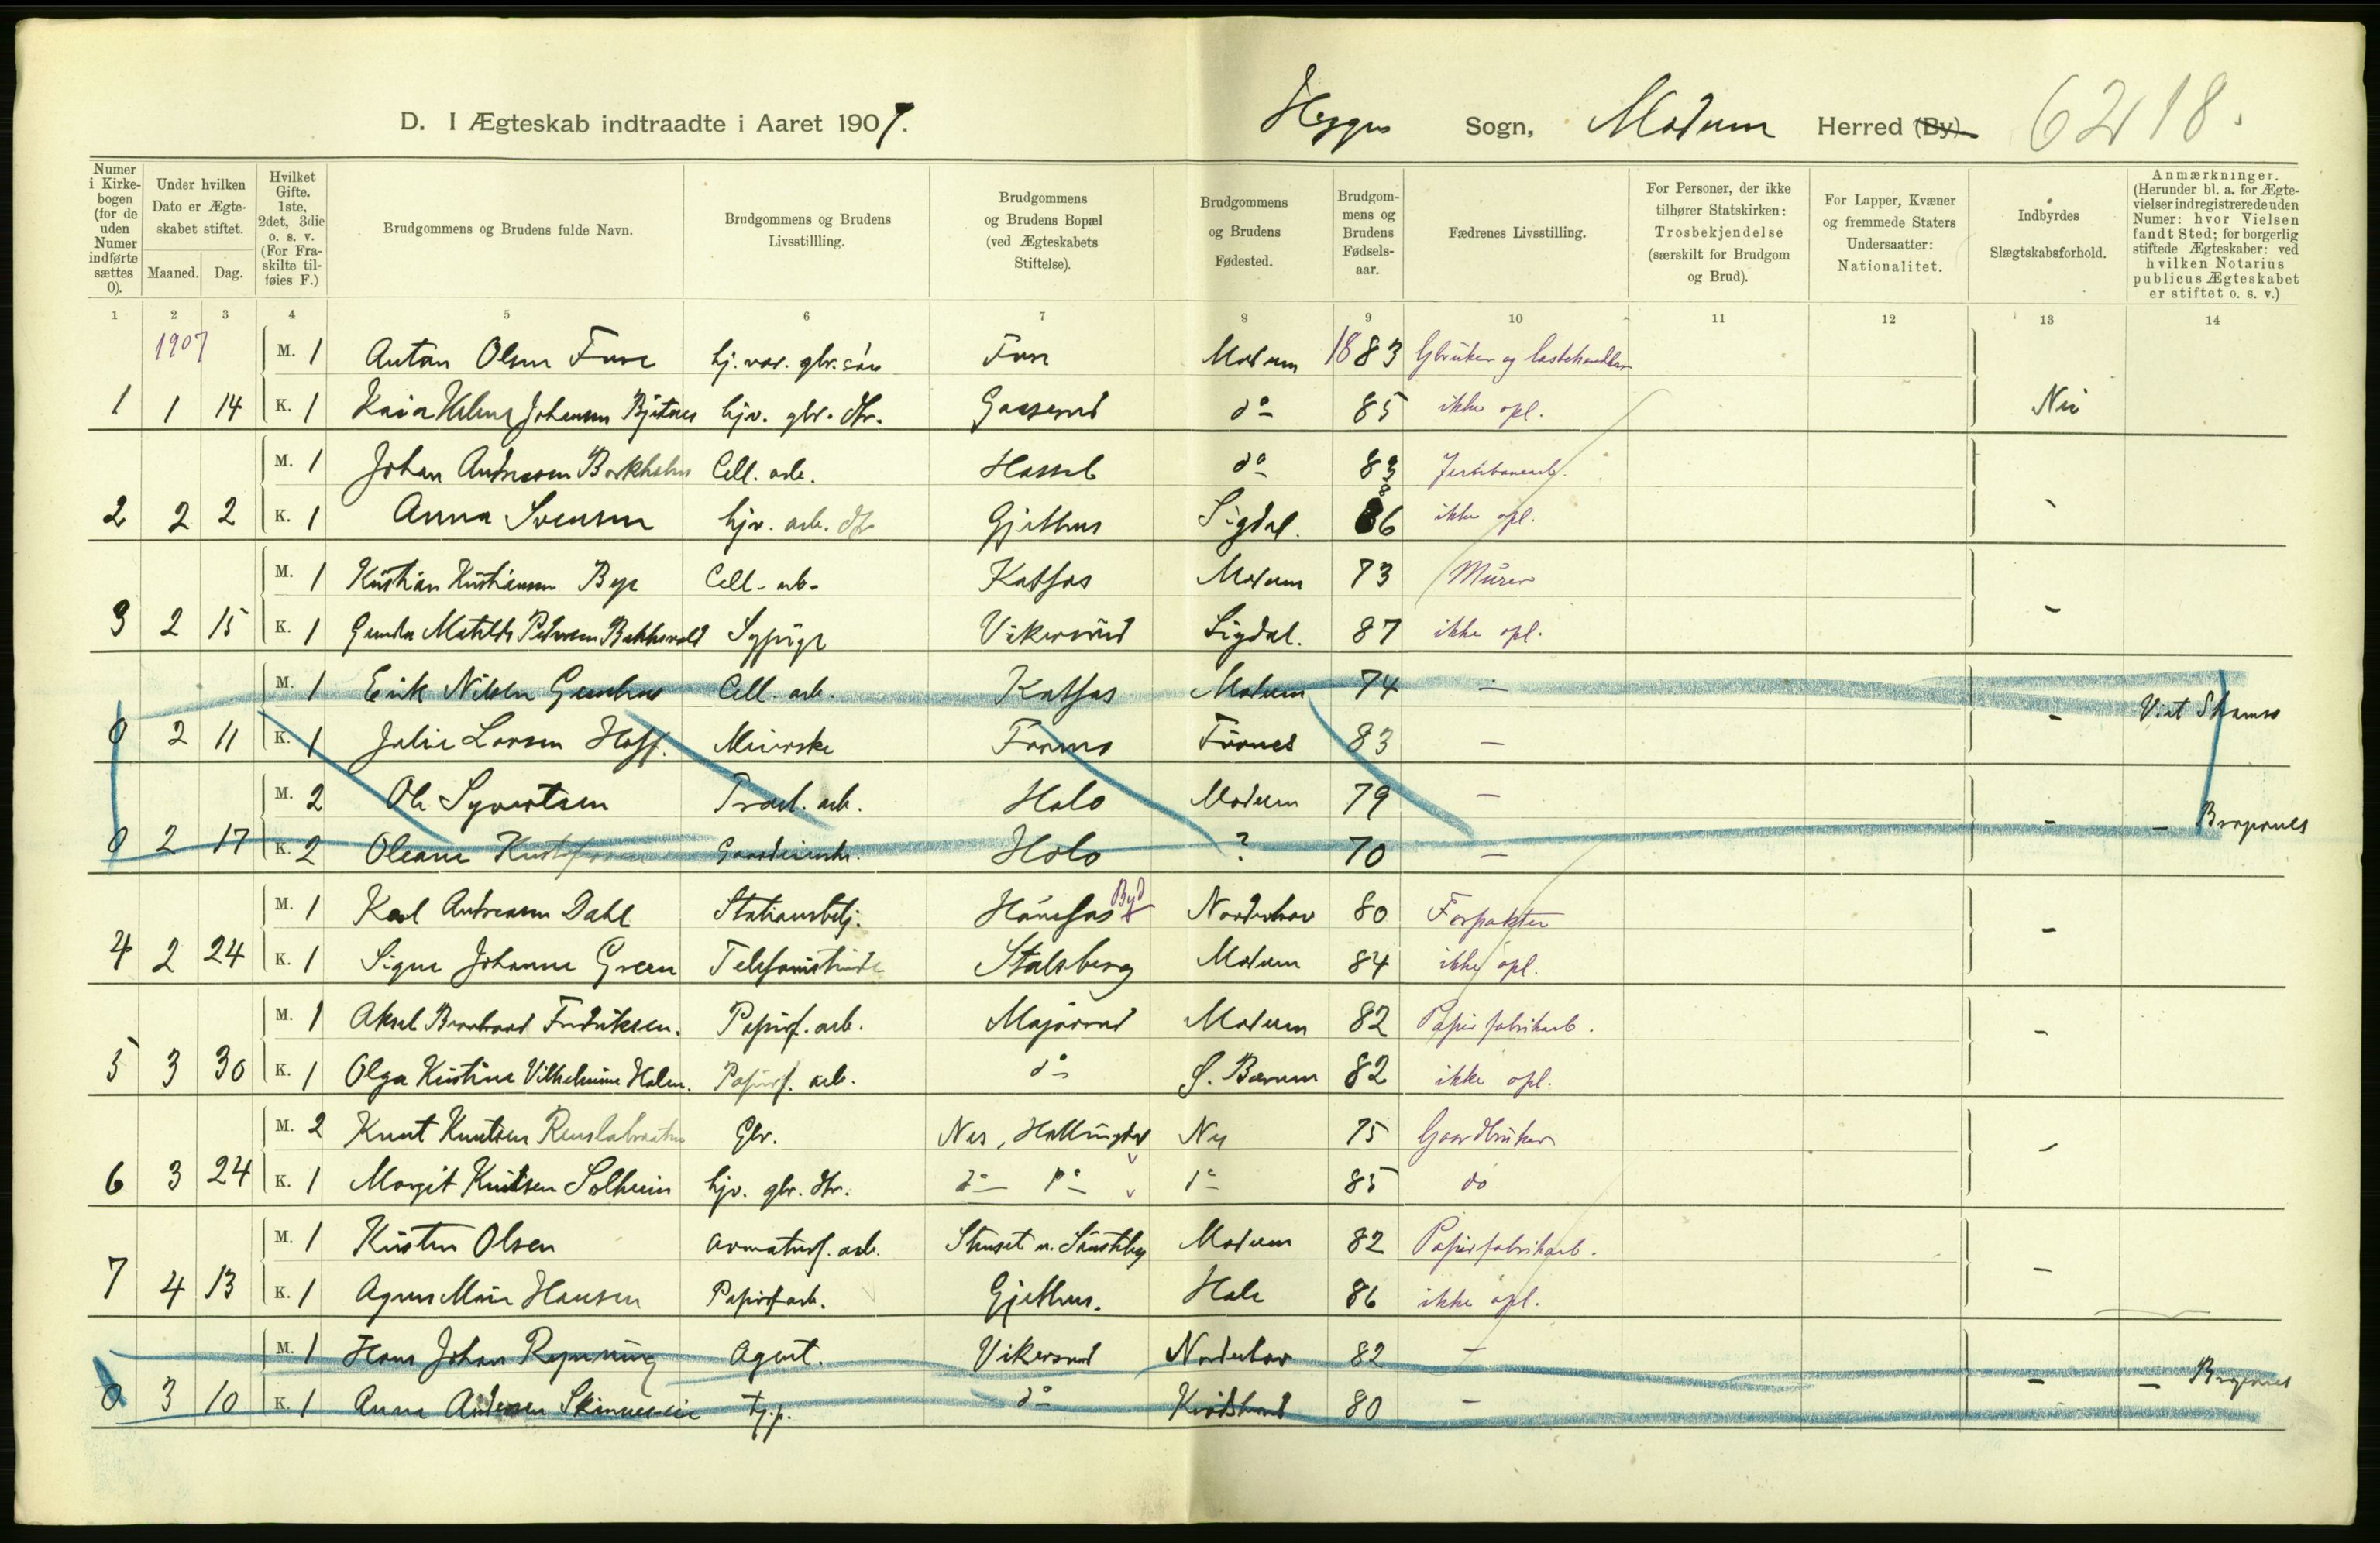 D. I Ægteskab indtraadte i Aaret 1907. Sogn, Modum Herred (By) 6218.
Numer i Kirkebogen (for de uden Numer indførte sættes 0).
Under hvilken Dato er Ægteskabet stiftet.
Maaned. Dag.
Hvilket Gifte. 1ste, 2det, 3die o. s. v. (For Fraskilte tilføies F.)
Brudgommens og Brudens fulde Navn.
Brudgommens og Brudens Livsstillling.
Brudgommens og Brudens Bopæl (ved Ægteskabets Stiftelse).
Brudgommens og Brudens Fødested.
Brudgommens og Brudens Fødselsaar.
Fædrenes Livsstilling.
For Personer, der ikke tilhører Statskirken: Trosbekjendelse (særskilt for Brudgom og Brud).
For Lapper, Kvæner og fremmede Staters Undersaatter: Nationalitet.
Indbyrdes Slægtskabsforhold.
Anmærkninger. (Herunder bl. a. for Ægtevielser indregistrerede uden Numer: hvor Vielsen fandt Sted; for borgerlig stiftede Ægteskaber: ved hvilken Notarius publicus Ægteskabet er stiftet o. s. v.)
1 2 3 4 5 6 7 8 9 10 11 12 13 14
1907 M. 1 Anton Olsen Fure hj. vær. gbr. søn Modum 1883 Gbruker og
1 1 14 K. 1 Johansen hjv. gbr. dtr. do 85 ikke opl. Nei
M. 1 Johan Andreasen Cell. arb. Hassel do 83 Jernbanearb.
2 2 2 K. 1 Anna Svensen hjv. arb. dtr Gjethus Sigdal. 86 ikke opl. -
M. 1 Kristian Kristiansen Bye Cell. arb. Katfos Modum 73 Murer
3 2 15 K. 1 Gunda Matilde Pedersen Sypige Vikersund Sigdal. 87 ikke opl. -
M. 1 Erik Nilsen Cell. arb. Katfos Modum 74 -
0 2 11 K. 1 Julie Larsen Hoff. Meierske 83 - - Viet
M. 2 Ole Syvertsen arb. Holo Modum 79 -
0 2 17 K. 2 Oleane Holo ? 70 - - - Bragernes
M. 1 Karl Andreasen Dahl Stationsbetj. Hønefos Byd Norderhov 80 Forpakter
4 2 24 K. 1 Signe Johanne Green Telefonistinde Stalsberg Modum 84 ikke opl. -
M. 1 Aksel Bernhard Fredriksen. Papirf. arb. Modum 82 Papirfabrikarb.
5 3 30 K. 1 Olga Kristine Vilhelmine Holm. Papirf. arb. do 82 ikke opl. -
M. 2 Knut Knutsen Gbr. Nes, Hallingdal 75 Gaardbruker
6 3 24 K. 1 Margit Knutsen Solheim hjv. gbr. dtr. do do do 85 do -
M. 1 Kristen Olsen armaturf. arb. Modum 82 Papirfabrikarb.
7 4 13 K. 1 Agnes Marie Hansen Papirf arb. Gjethus. Hole 86 ikke opl. -
M. 1 Hans Johan Agent. Vikersund Norderhov 82 -
0 3 10 K. 1 Anna Andersen tj. p. do 80 - - - Bragernes